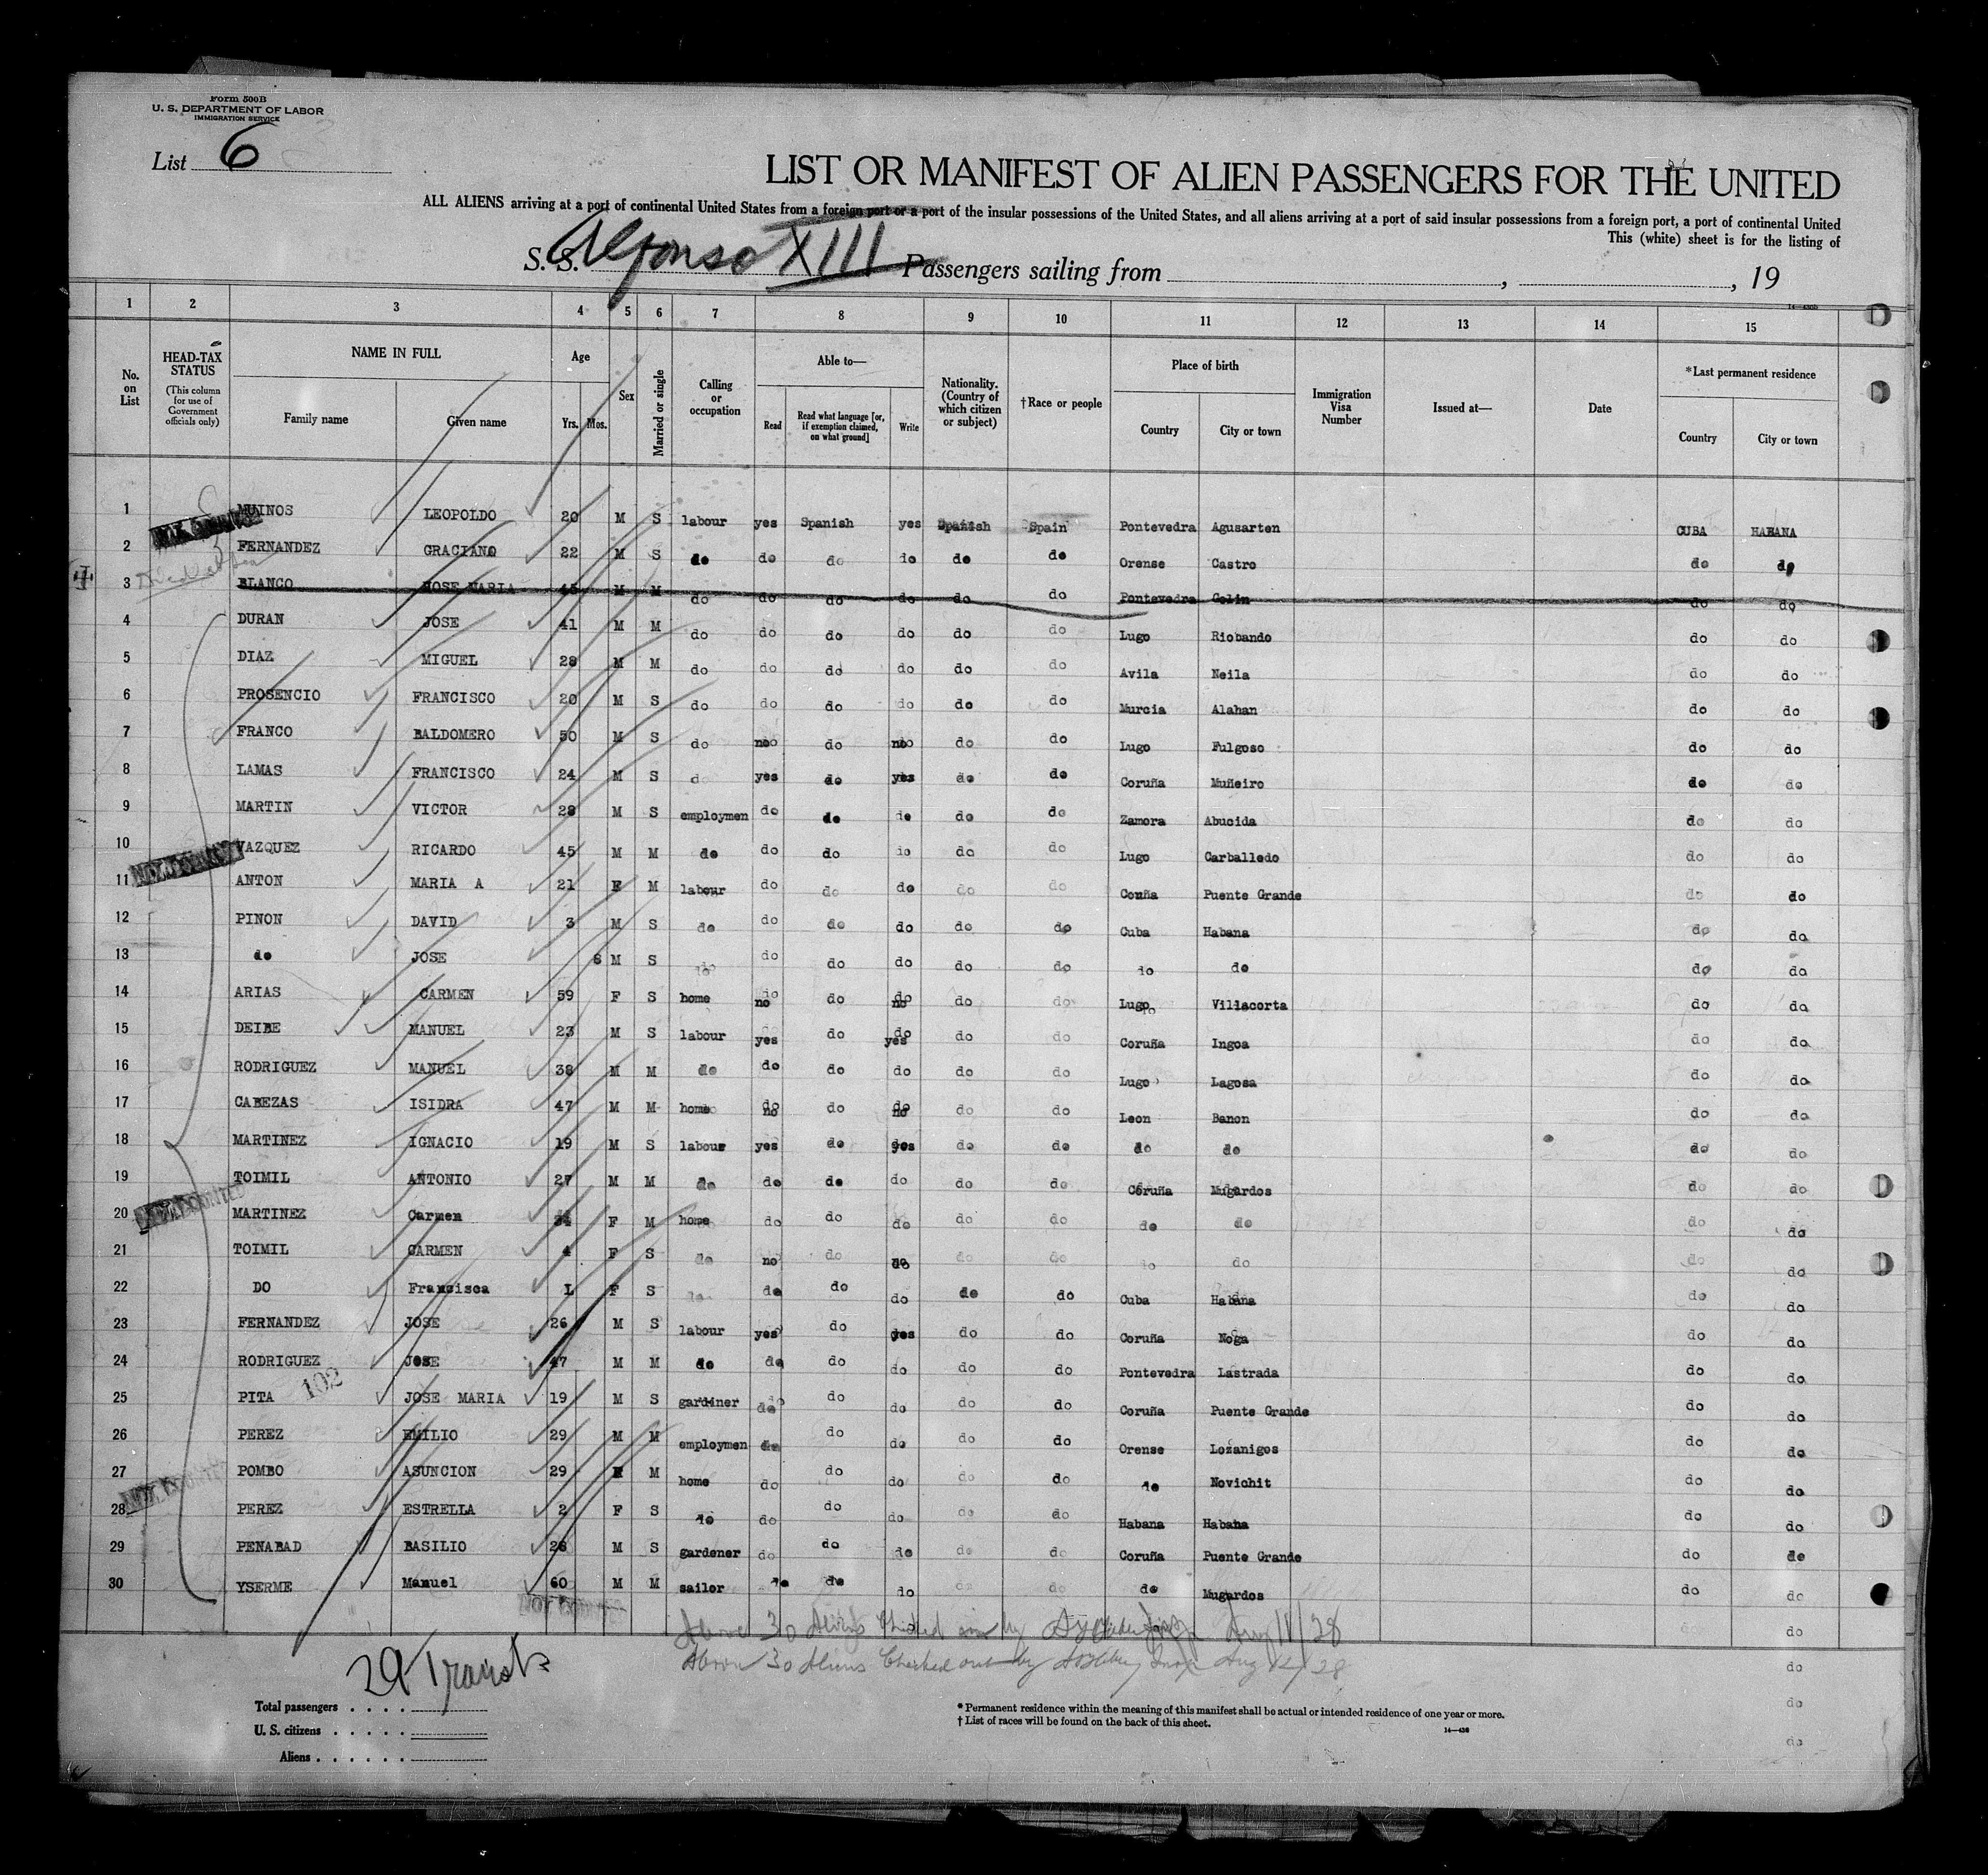 Form 500B
U. S. DEPARTMENT OF LABOR
IMMIGRATION SERVICE
List 6
LIST OR MANIFEST OF ALIEN PASSENGERS FOR THE UNITED
ALL ALIENS arriving at a port of continental United States from a foreign port or a port of the insular possessions of the United States, and all aliens arriving at a port of said insular possessions from a foreign port, a port of continental United
This (white) sheet is for the listing of
S. S. Alfonso XIII Passengers sailing from , , 19
1 2 3 4 5 6 7 8 9 10 11 12 13 14 15
No. on List HEAD-TAX STATUS (This column for use of Government officials only) NAME IN FULL Family name Given name Age Yrs. Mos. Sex Married or single Calling or occupation Able to— Read Read what language [or, if exemption claimed, on what ground] Write Nationality. (Country of which citizen or subject) †Race or people Place of birth Country City or town Immigration Visa Number Issued at— Date *Last permanent residence Country City or town
1 MUINOS LEOPOLDO 20 M S labour yes Spanish yes Spanish Spain Pontevedra Agusarten CUBA HABANA
2 FERNANDEZ GRACIANO 22 M S do do do do do do Orense Castro do do
3 BLANCO JOSE MARIA 45 M M do do do do do do Pontevedra Golin do do
4 DURAN JOSE 41 M M do do do do do do Lugo Riobando do do
5 DIAZ MIGUEL 28 M M do do do do do do Avila Neila do do
6 PROSENCIO FRANCISCO 20 M S do do do do do do Murcia Alahan do do
7 FRANCO BALDOMERO 50 M S do no do no do do Lugo Fulgoso do do
8 LAMAS FRANCISCO 24 M S do yes do yes do do Coruña Muñeiro do do
9 MARTIN VICTOR 28 M S employmen do do do do do Zamora Abucida do do
10 VAZQUEZ RICARDO 45 M M do do do do do do Lugo Carballedo do do
11 ANTON MARIA A 21 F M labour do do do do do Coruña Puente Grande do do
12 PINON DAVID 3 M S do do do do do do Cuba Habana do do
13 do JOSE 8 M S do do do do do do do do do do
14 ARIAS CARMEN 59 F S home no do no do do Lugo Villacorta do do
15 DEIBE MANUEL 23 M S labour yes do yes do do Coruña Ingoa do do
16 RODRIGUEZ MANUEL 38 M M do do do do do do Lugo Lagosa do do
17 CABEZAS ISIDRA 47 M M home no do no do do Leon Banon do do
18 MARTINEZ IGNACIO 19 M S labour yes do yes do do do do do do
19 TOIMIL ANTONIO 27 M M do do do do do do Coruña Mugardos do do
20 MARTINEZ Carmen 34 F M home do do do do do do do do do
21 TOIMIL CARMEN 4 F S do no do no do do do do do do
22 DO Francisca 1 F S do do do do do do Cuba Habana do do
23 FERNANDEZ JOSE 26 M S labour yes do yes do do Coruña Noga do do
24 RODRIGUEZ JOSE 47 M M do do do do do do Pontevedra Lastrada do do
102
25 PITA JOSE MARIA 19 M S gardiner do do do do do Coruña Puente Grande do do
26 PEREZ EMILIO 29 M M employmen do do do do do Orense Lozanigos do do
27 POMBO ASUNCION 29 F M home do do do do do do Novichit do do
28 PEREZ ESTRELLA 2 F S do do do do do do Habana Habana do do
29 PENABAD BASILIO 26 M S gardener do do do do do Coruña Puente Grande do do
30 YSERME Manuel 60 M M sailor do do do do do do Mugardos do do
do do
Above 30 Aliens Checked by Aug 11/28
Above 30 Aliens Checked out by Insp Aug 12/28
do
29 Transit
do
Total passengers . . . .
U. S. citizens . . . . .
Aliens . . . . . .
* Permanent residence within the meaning of this manifest shall be actual or intended residence of one year or more.
† List of races will be found on the back of this sheet.
do